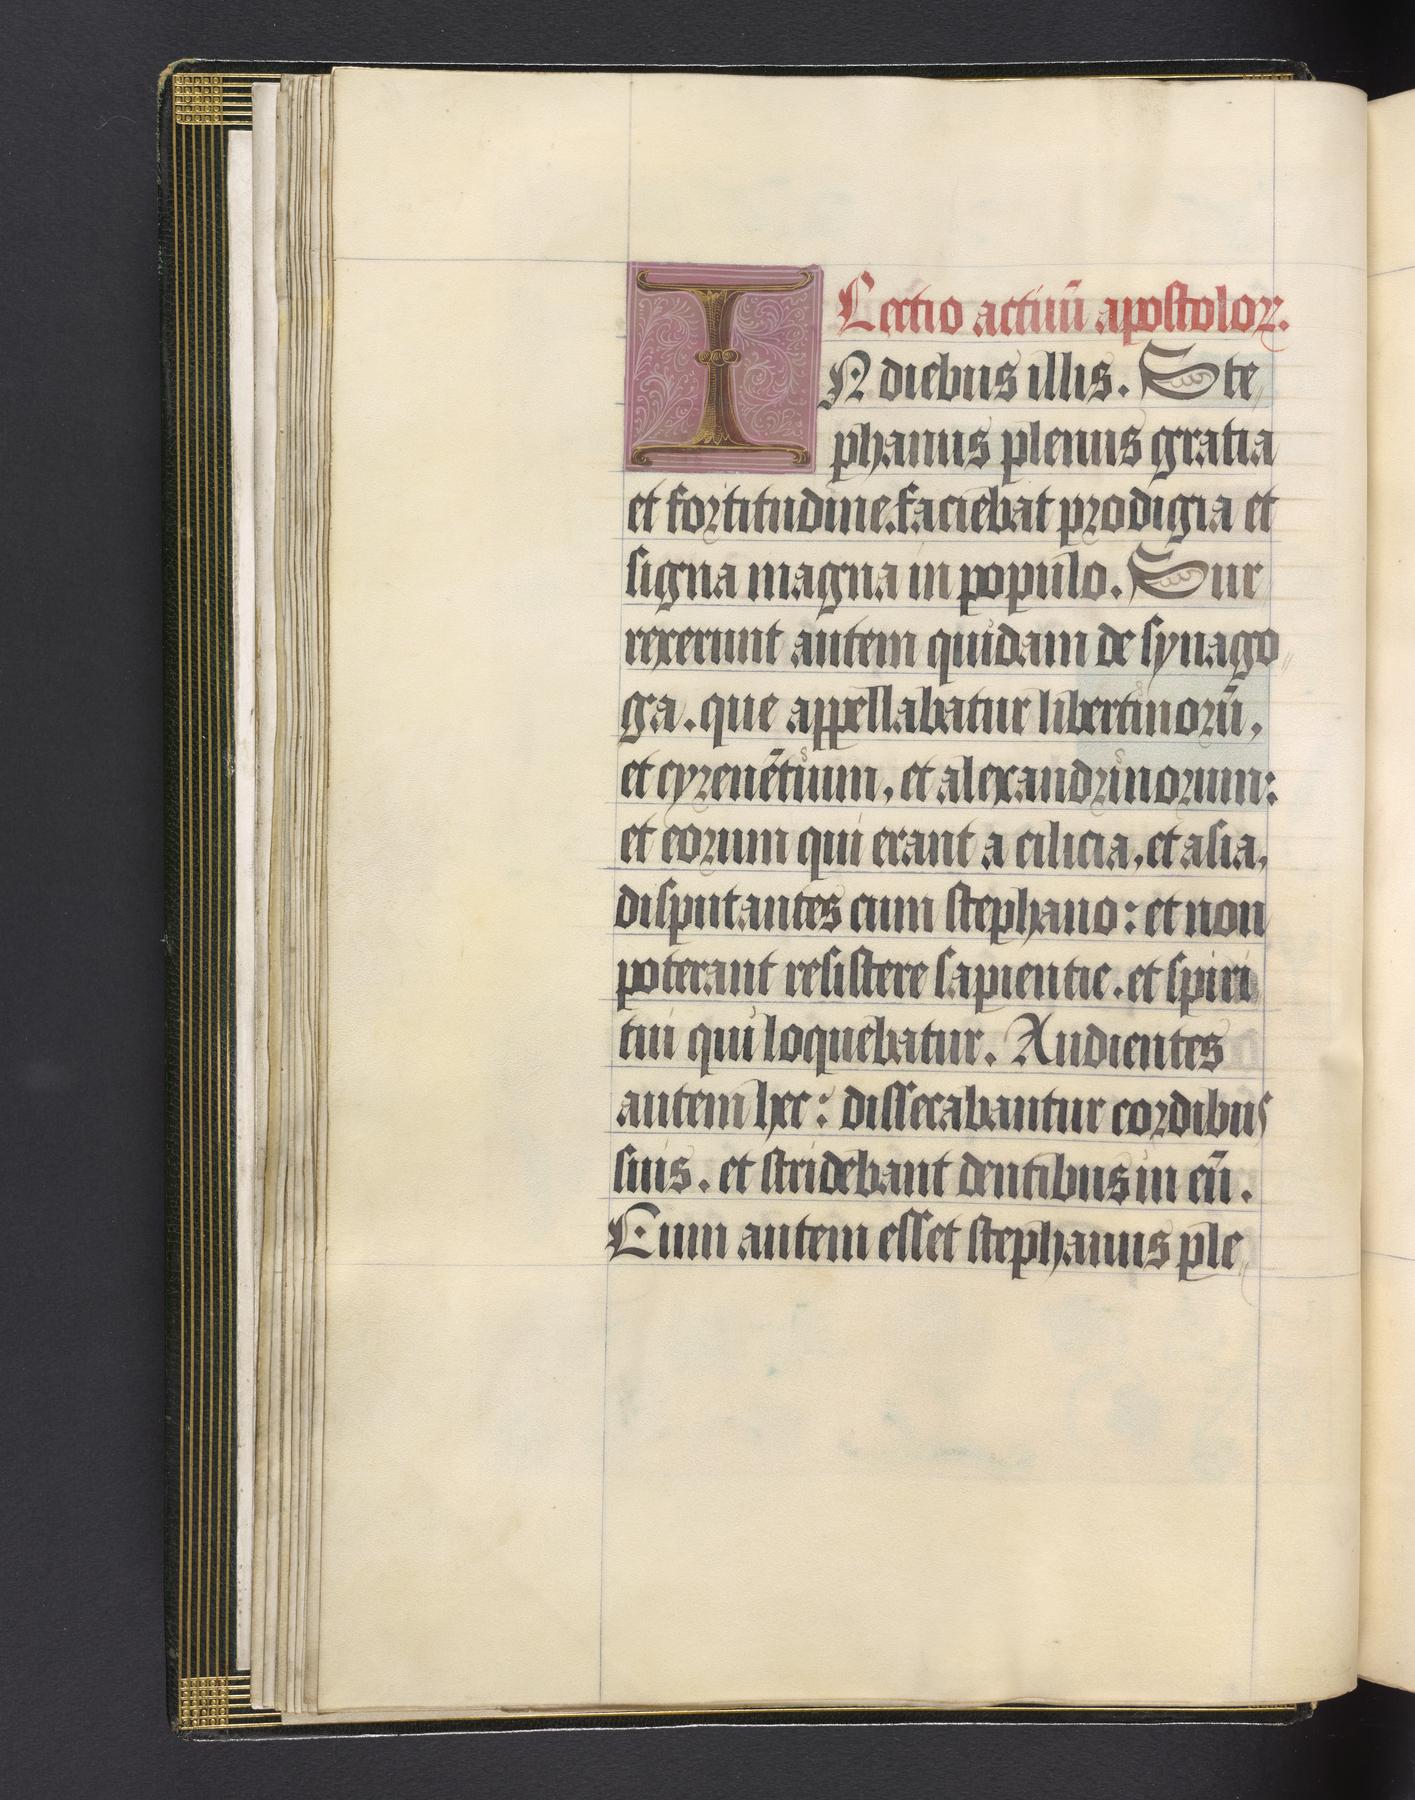 Lectio actuū apostoloꝝ.
IN diebus illis. Ste
phanus plenus gratia
et fortitudine. faciebat prodigia et
signa magna in populo. Sur
rexerunt autem quidam de synago
ga. que appellabatur libertinorū,
et cyrenētium, et alexandrinorum:
et eorum qui erant a cilicia, et asia,
disputantes cum stephano: et non
poterant resistere sapientie. et spiri
tui qui loquebatur. Audientes
autem hec: dissecabantur cordibus
suis. et stridebant dentibus in eū.
Cum autem esset stephanus ple